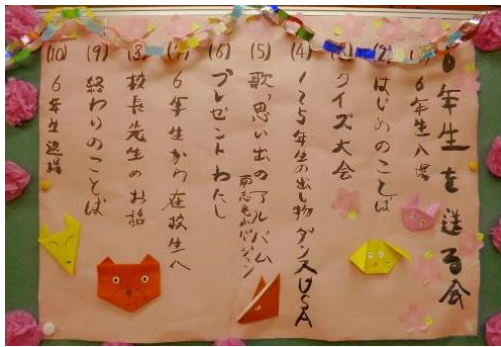 6年生を送る会
(1) 6年生入場
(2) はじめのことば
(3) クイズ大会
(4) 1~5年生の出し物 ダンスUSA
(5) 歌「思い出のアルバム
バージョン
(6) プレゼントわたし
(7) 6年生から在校生へ
(8) 校長先生のお話
(9) 終わりのことば
(10) 6年生退場